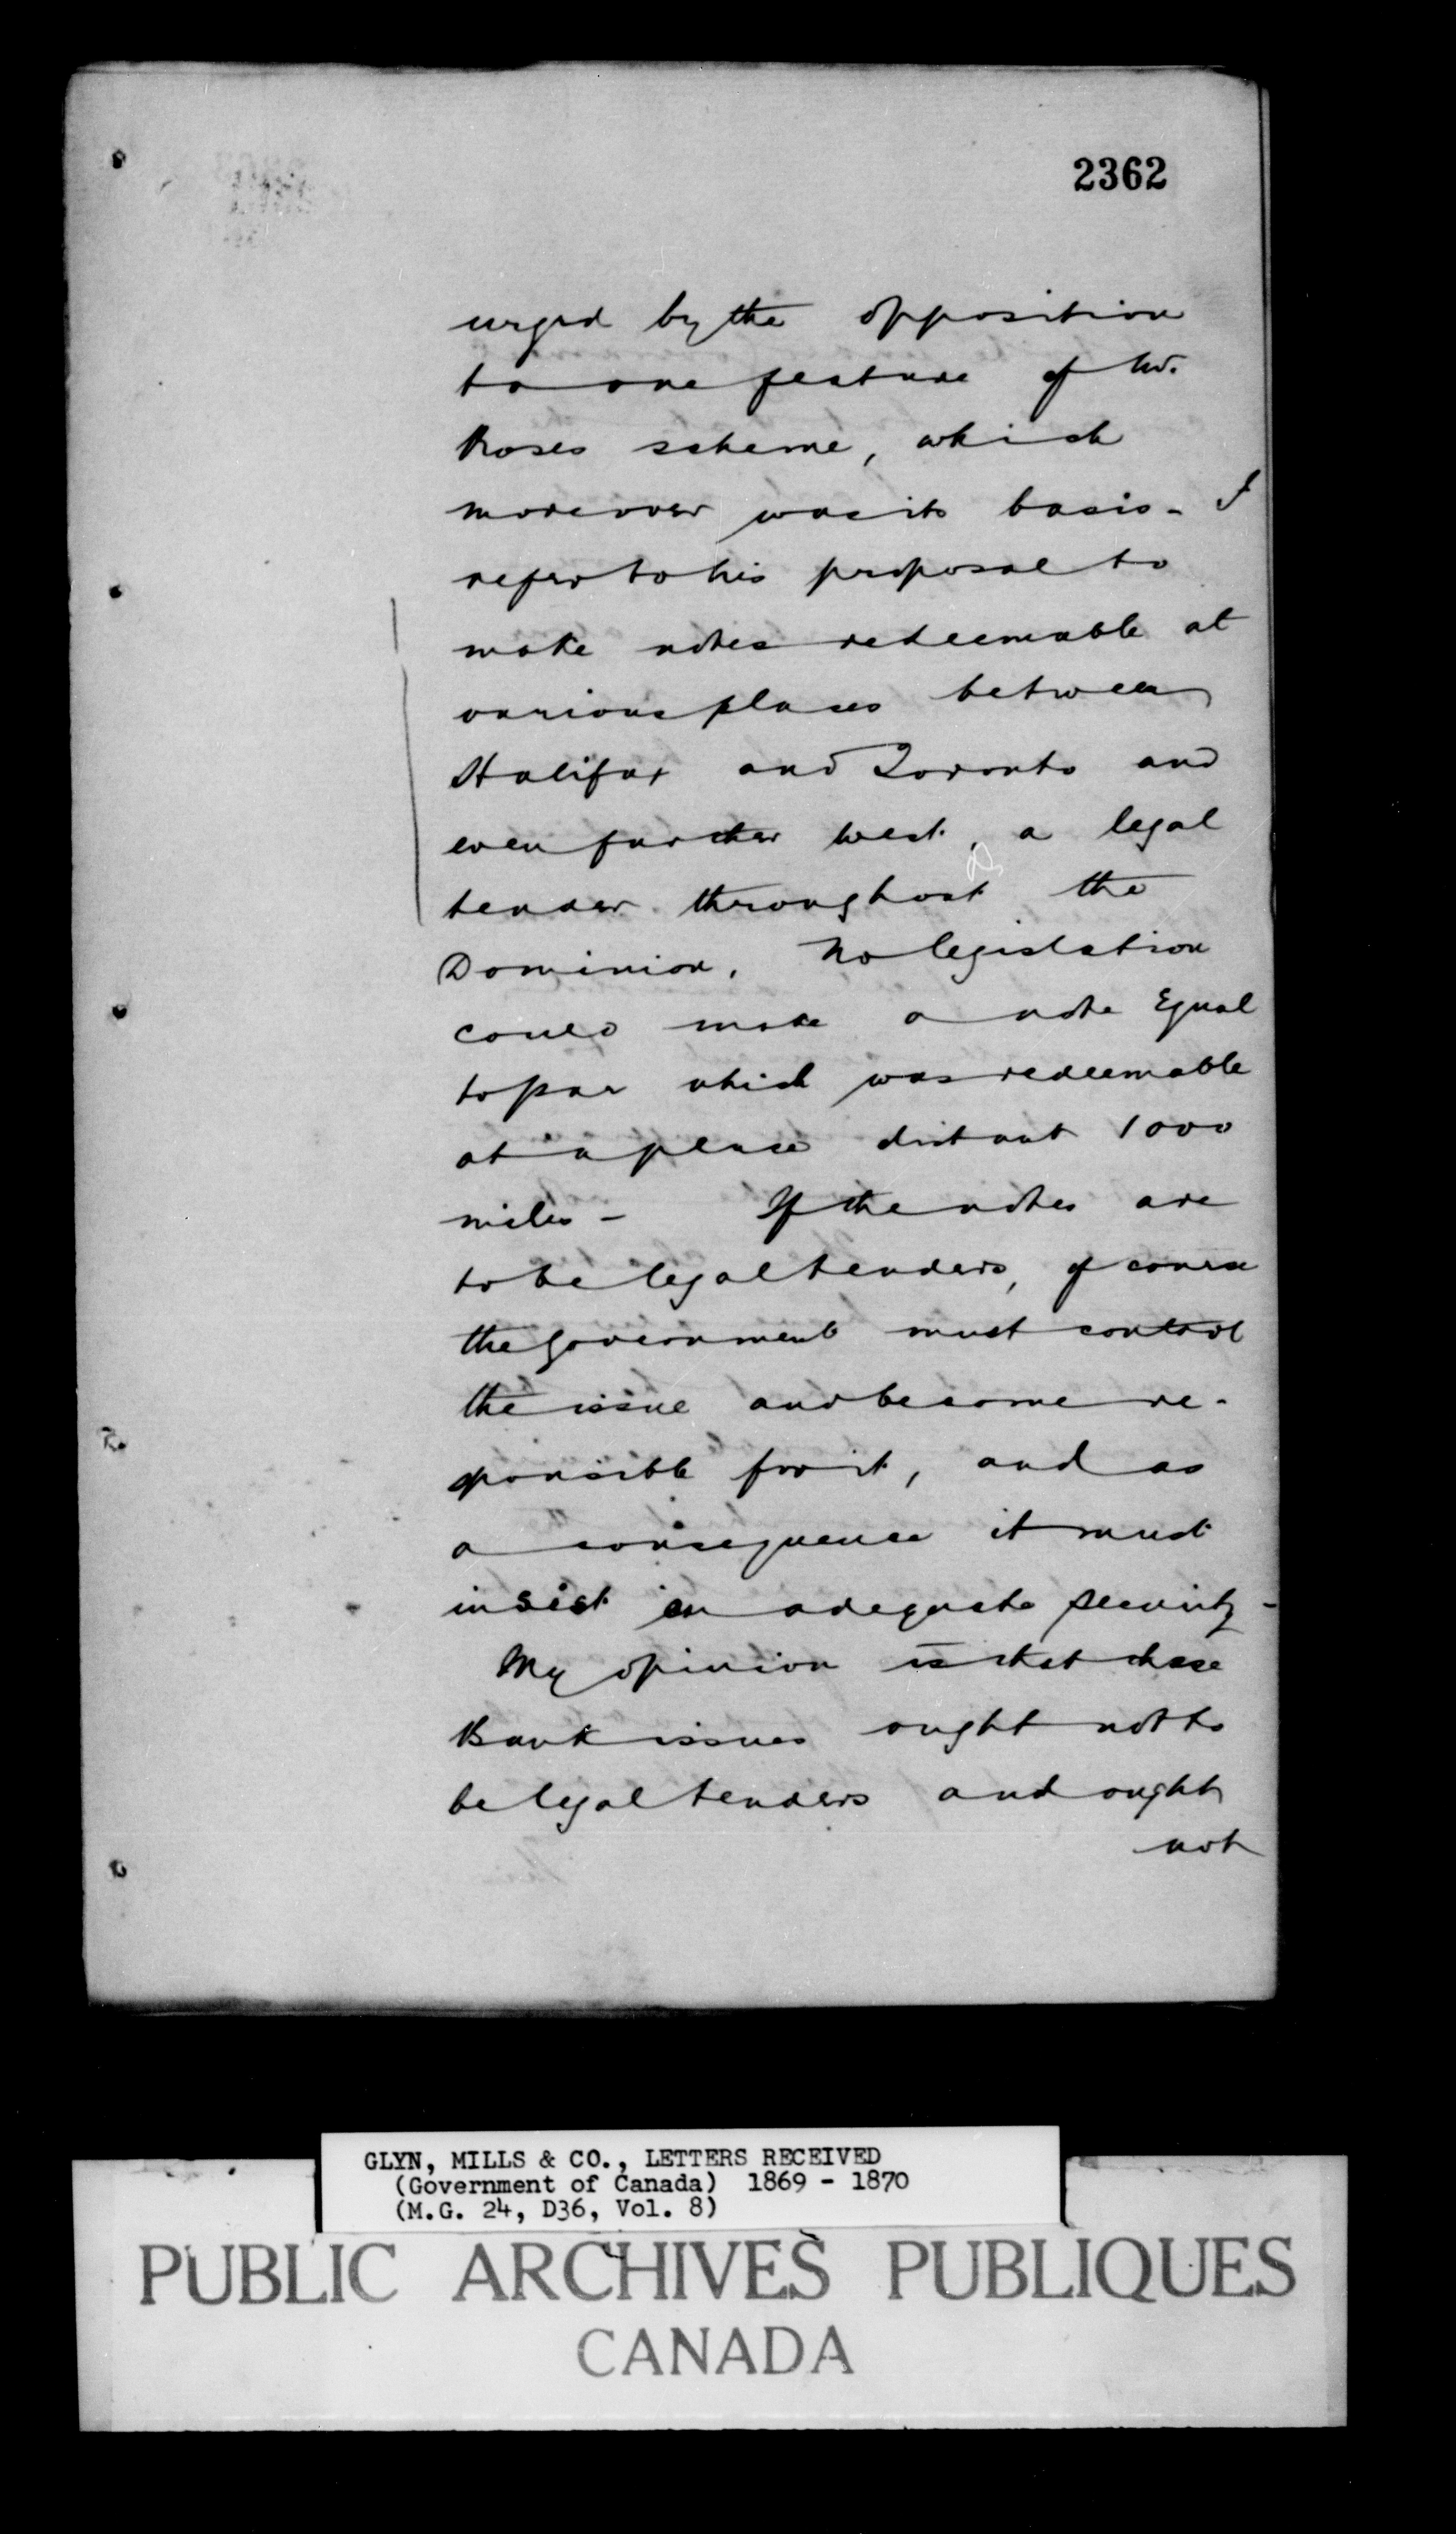 2362
urged by the opposition
to one feature of Mr.
Roses scheme, which
moreover was its basis - I
refer to his proposal to
make notes redeemable at
various places between
Halifax and Toronto and
even further west, a legal
tender throughout the
Dominion. No legislation
could make a note Equal
to par which was redeemable
at a place distant 1000
miles - If the notes are
to be legal tenders, of course
the government must control
the issue and become re-
sponsible for it, and as
a consequence it must
insist on adequate security -
My opinion is that these
Bank issues ought not to
be legal tenders and ought
not
GLYN, MILLS & CO., LETTERS RECEIVED
(Government of Canada) 1869 - 1870
(M.G. 24, D36, Vol. 8)
PUBLIC ARCHIVES PUBLIQUES
CANADA